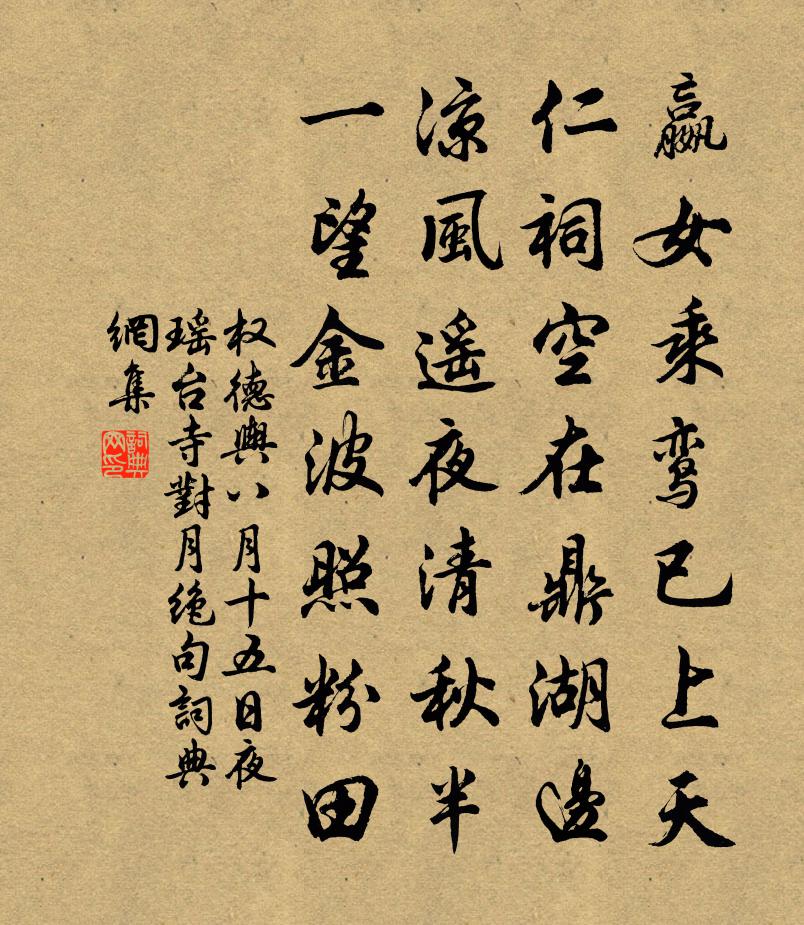 嬴女乘鸾已上天
仁祠空在鼎湖邊
涼風遥夜清秋半
一望金波照粉田
权德輿八月十五日夜
瑶台寺對月绝句詞典
網集
詞典网印